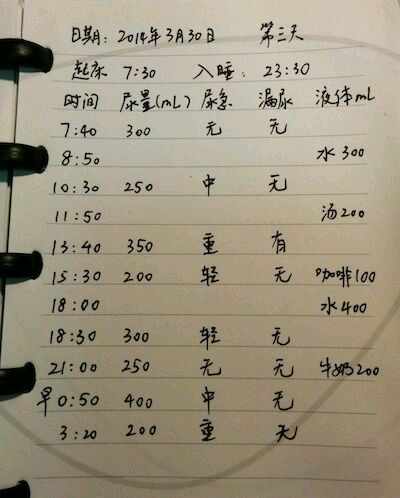 日期: 2014年3月30日 第三天
起床 7:30 入睡: 23:30
时间 尿量(mL) 尿急 漏尿 液体mL
7:40 300 无 无
8:50 水300
10:30 250 中 无
11:50 汤200
13:40 350 重 有
15:30 200 轻 无 咖啡100
18:00 水400
18:30 300 轻 无
21:00 250 无 无 牛奶200
早0:50 400 中 无
3:20 200 重 无